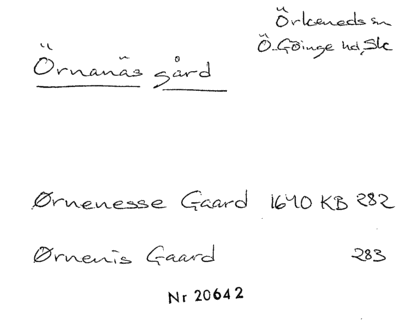 Örkeneds sn
Ö. Göinge hd, Sk
Örnanäs gård
Ørnenesse Gaard 1640 KB 282
Ørnenis Gaard 283
Nr 20642